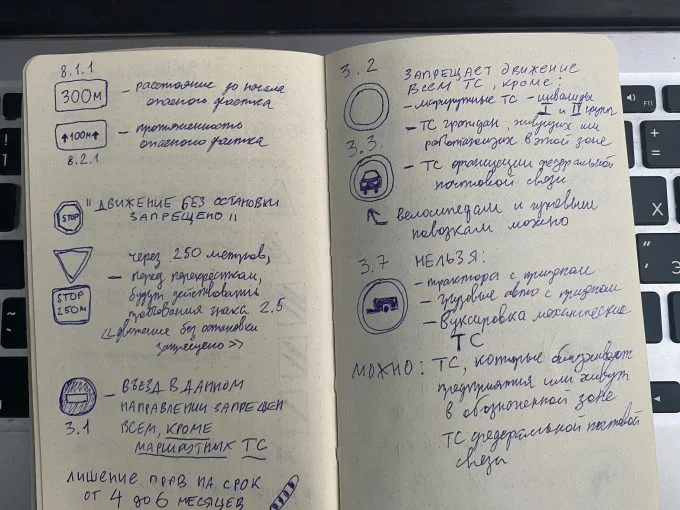 8.1.1
300м
— расстояние до начала
опасного участка
↑100м↑
— протяженность
опасного участка
8.2.1
STOP
"ДВИЖЕНИЕ БЕЗ ОСТАНОВКИ
ЗАПРЕЩЕНО"
через 250 метров,
— перед перекрёстком,
STOP
250м
будут действовать
требования знака 2.5
<<движение без остановки
запрещено>>
— ВЪЕЗД В ДАННОМ
НАПРАВЛЕНИИ ЗАПРЕЩЕН
3.1
ВСЕМ, КРОМЕ
МАРШРУТНЫХ ТС
ЛИШЕНИЕ ПРАВ НА СРОК
ОТ 4 ДО 6 МЕСЯЦЕВ
3.2
ЗАПРЕЩАЕТ ДВИЖЕНИЕ
ВСЕМ ТС, КРОМЕ:
— маршрутные ТС — инвалиды
I и II групп
— ТС граждан, живущих или
работающих в этой зоне
3.3.
— ТС федеральной
почтовой связи
велосипедам и гужевым
повозкам можно
3.7
НЕЛЬЗЯ:
— трактора с прицепом
— грузовые авто с прицепом
— Буксировка механических
ТС
МОЖНО: ТС, которые обслуживают
предприятия или живут
в обозначенной зоне
ТС федеральной почтовой
связи
F11
Э